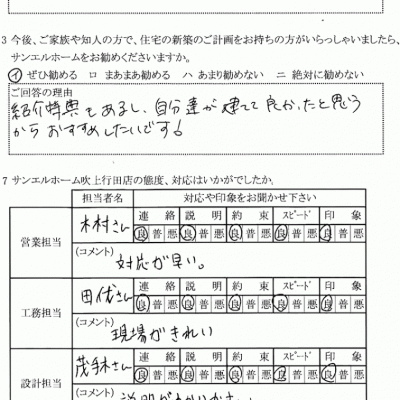 3 今後、ご家族や知人の方で、住宅の新築のご計画をお持ちの方がいらっしゃいましたら、
サンエルホームをお勧めくださいますか。
イ ぜひ勧める ロ まあまあ勧める ハ あまり勧めない ニ 絶対に勧めない
ご回答の理由
紹介特典もあるし、自分達が建てて良かったと思う
からおすすめしたいです!
7 サンエルホーム吹上行田店の態度、対応はいかがでしたか。
担当者名 対応や印象をお聞かせ下さい
営業担当 木村さん 連絡 説明 約束 スピード 印象
良 普 悪 良 普 悪 良 普 悪 良 普 悪 良 普 悪
(コメント)
対応が早い。
工務担当 田代さん 連絡 説明 約束 スピード 印象
良 普 悪 良 普 悪 良 普 悪 良 普 悪 良 普 悪
(コメント)
現場がきれい
設計担当 茂手木さん 連絡 説明 約束 スピード 印象
良 普 悪 良 普 悪 良 普 悪 良 普 悪 良 普 悪
(コメント)